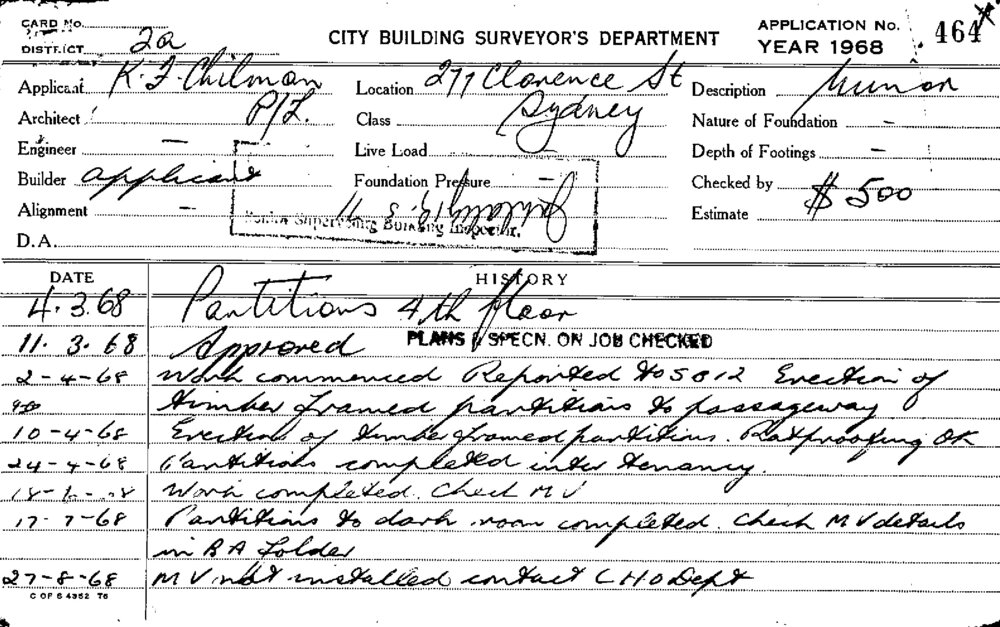 CARD No.
DISTRICT 2a
CITY BUILDING SURVEYOR'S DEPARTMENT
APPLICATION No. 464
YEAR 1968
Applicant K. F. Chilman
Location 277 Clarence St
Description Minor
Architect P/L.
Class Sydney
Nature of Foundation —
Engineer —
Live Load
Depth of Footings —
Builder applicant
Foundation Pressure —
Checked by
Alignment —
Senior Supervising Building Inspector.
Estimate $500
D.A.
DATE HISTORY
4.3.68 Partitions 4th floor
11.3.68 Approved PLANS & SPECN. ON JOB CHECKED
2-4-68 Work commenced Reported to 5812 Erection of
timber framed partitions to passageway
10-4-68 Erection of timber framed partitions. Ratproofing OK
24-4-68 Partitions completed inter tenancy.
Work completed. Check M V
17-7-68 Partitions to dark room completed. Check M V details
in B A Folder
27-8-68 M V not installed contact C H O Dept
C OF S 4352 76